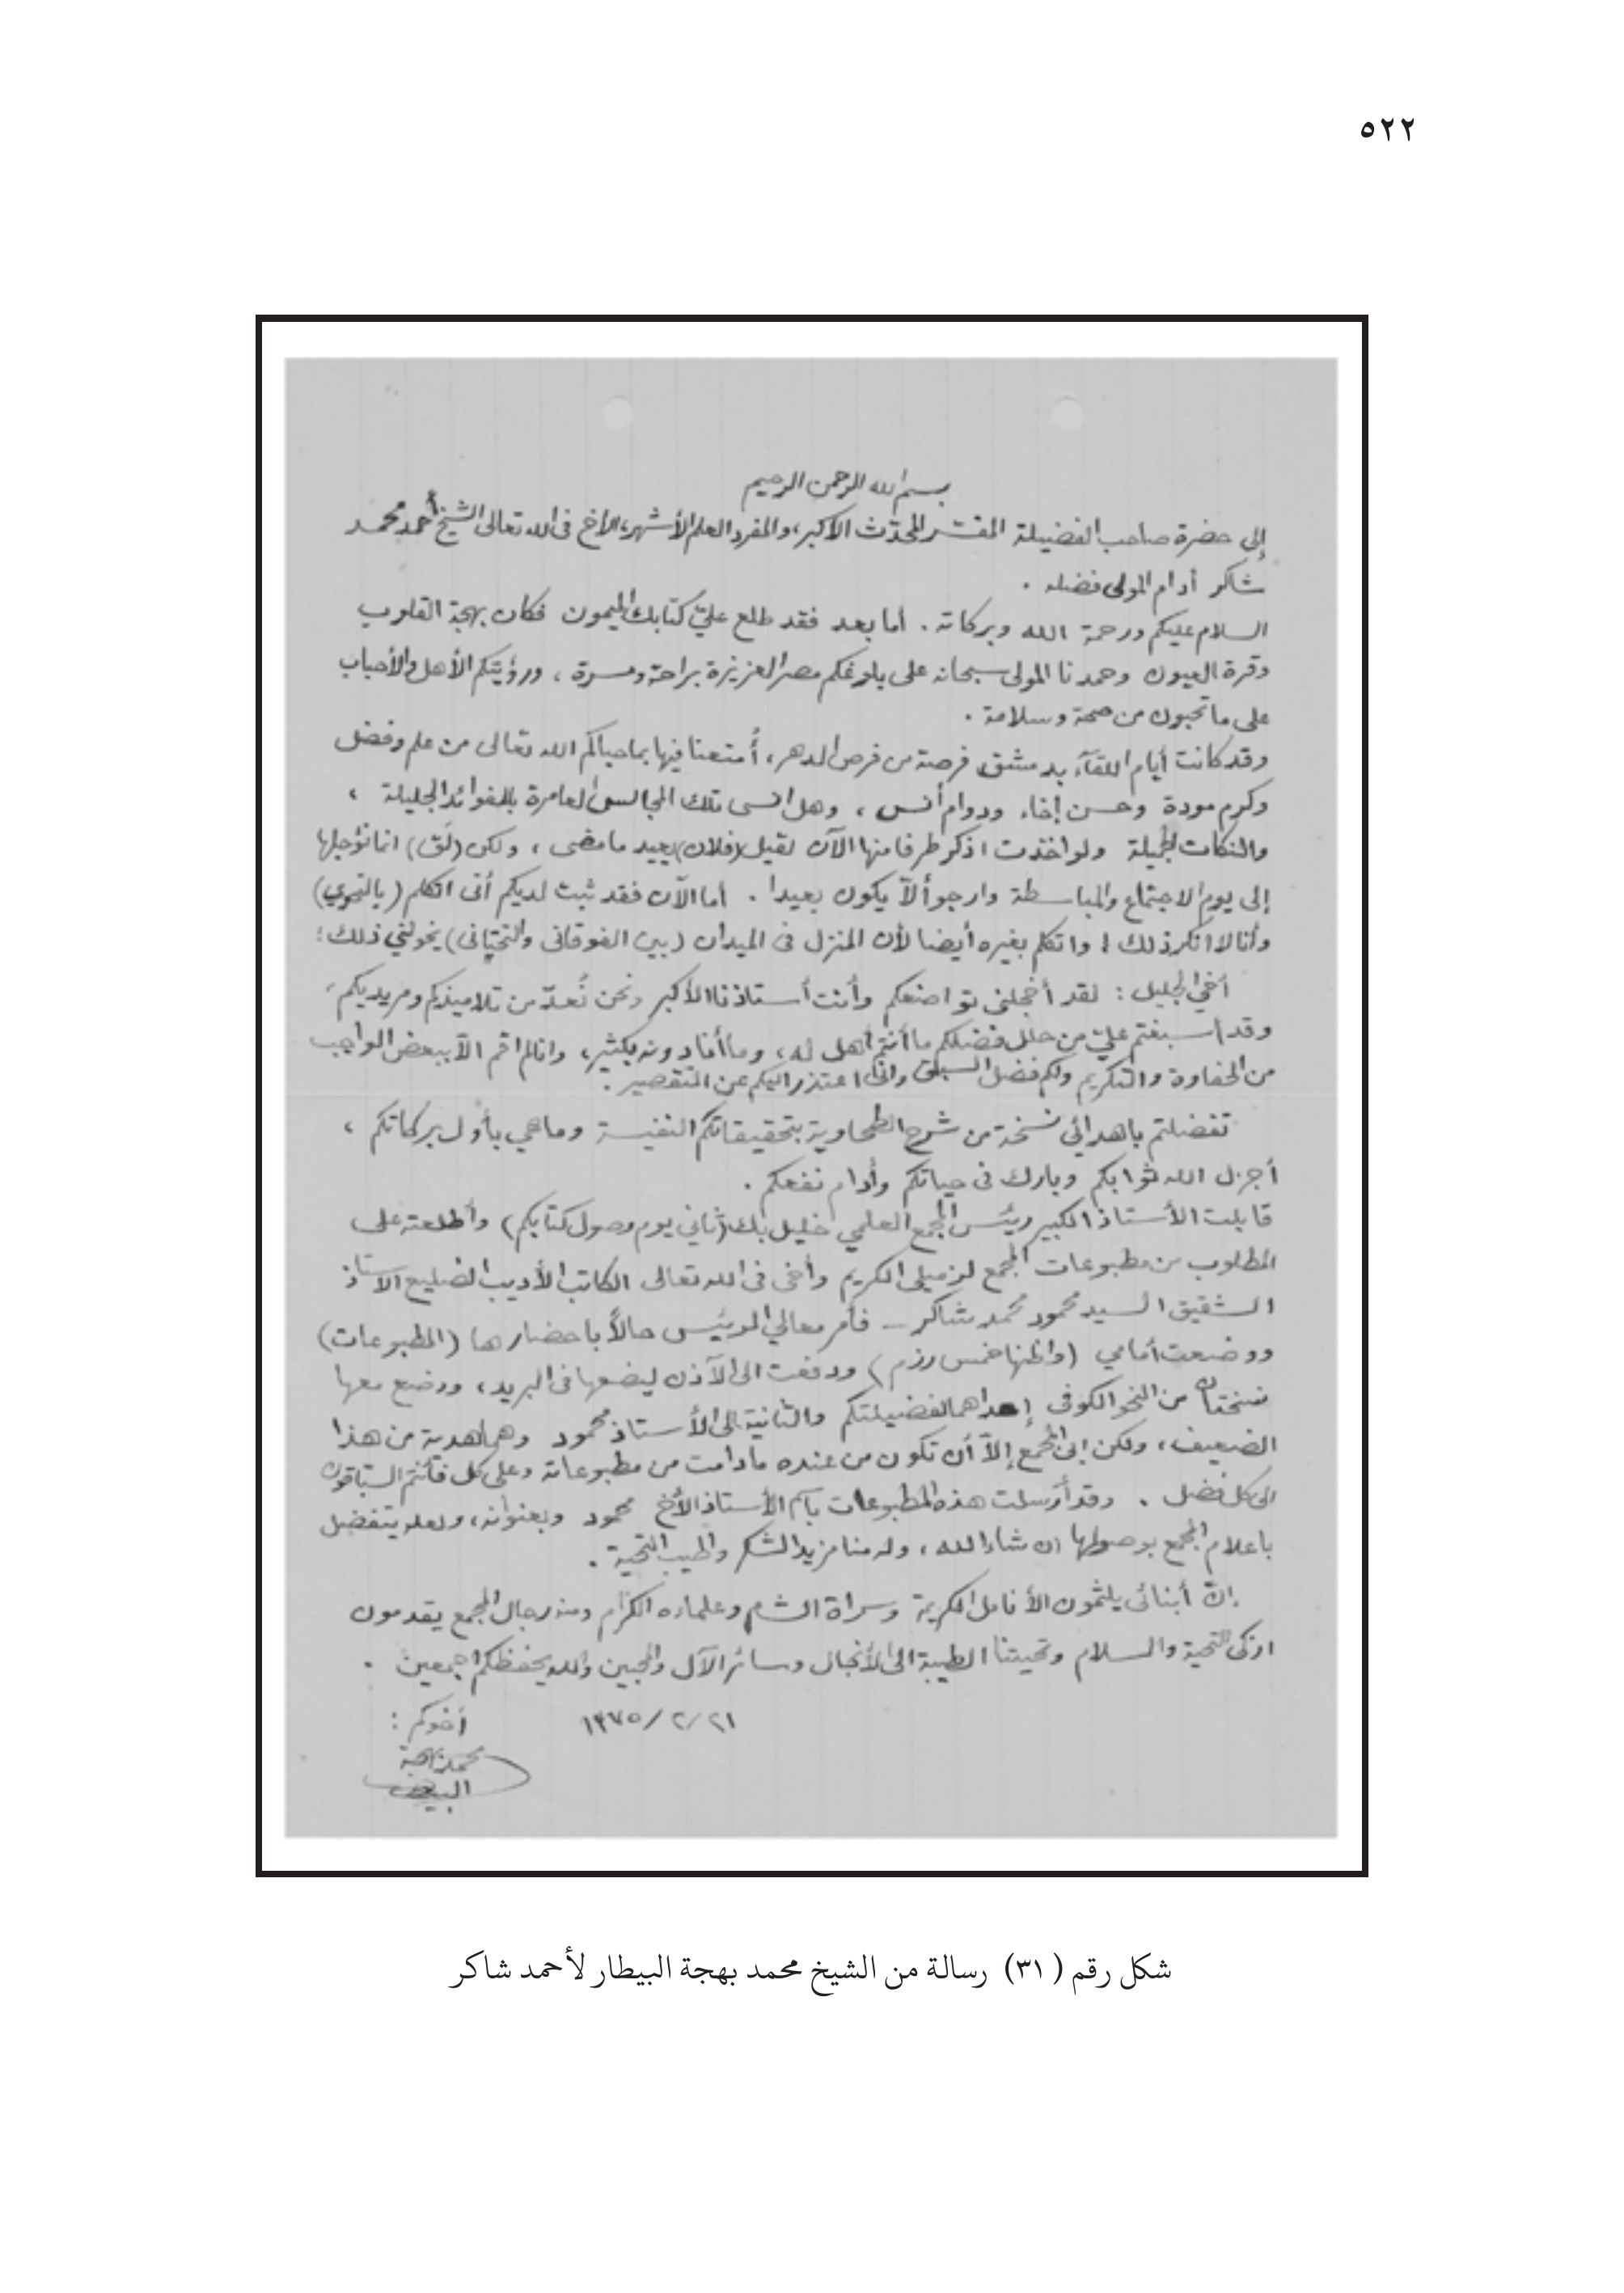 ٥٢٢
بسم الله الرحمن الرحيم
إلى حضرة صاحب الفضيلة المفسّر المحدّث الأكبر، والمفرد العلم الأشهر، الأخ في الله تعالى الشيخ أحمد محمد
شاكر أدام المولى فضله .
السلام عليكم ورحمة الله وبركاته . أما بعد فقد طلع عليّ كتابك الميمون فكان بهجة القلوب
وقرة العيون وحمدنا المولى سبحانه على بلوغكم مصر العزيزة براحة ومسرة ، ورؤيتكم الأهل والأحباب
على ما تحبون من صحة وسلامة .
وقد كانت أيام اللقآء بدمشق فرصة من فرص الدهر ، أُمتعنا فيها بما حباكم الله تعالى من علم وفضل
وكرم مودة وحسن إخاء ودوام أنس ، وهل انسى تلك المجالس العامرة بالفوائد الجليلة ،
والنكات الجميلة ولو اخذت اذكر طرفا منها الآن لقيل (فلان) يعيد ما مضى ، ولكن (لَقْ) انما نؤجلها
إلى يوم الاجتماع والمباسطة وارجو ألاّ يكون بعيدا . أما الآن فقد ثبت لديكم أنى اتكلم (بالنحوي)
وأنا لا انكر ذلك ! واتكلم بغيره أيضا لأن المنزل فى الميدان (بين الفوقانى والتحتانى) يخولني ذلك :
أخي الجليل : لقد أخجلنى تواضعكم وأنت أستاذنا الأكبر ونحن نُعدّ من تلاميذكم ومريديكم ،
وقد أسبغتم عليّ من حلل فضلكم ما أنتم أهل له ، وما أفاد ونه بكثير ، وانا لم اقم الاّ ببعض الواجب
من الحفاوة والتكريم ولكم فضل السبق وانى اعتذر اليكم عن التقصير .
تفضلتم باهدائى نسخة من شرح الطحاوية بتحقيقاتكم النفيسة وما هي بأول بركاتكم ،
أجزل الله ثوابكم وبارك فى حياتكم وأدام نفعكم .
قابلت الأستاذ الكبير رئيس المجمع العلمي خليل بك (ثاني يوم وصول كتابكم) وأطلعته على
المطلوب من مطبوعات المجمع لزميلى الكريم وأخى فى الله تعالى الكاتب الأديب الضليع الاستاذ
الشقيق السيد محمود محمد شاكر – فأمر معالي الرئيس حالاً باحضارها (المطبوعات)
ووضعت أمامي (واظنها خمس رزم) ودفعت الى الآذن ليضعها فى البريد ، ووضع معها
نسختان من النحو الكوفى إحداهما لفضيلتكم والثانية الى الأستاذ محمود وهما هدية من هذا
الضعيف ، ولكن ابى المجمع إلاّ أن تكون من عنده ما دامت من مطبوعاته وعلى كل فأنتم السبّاقون
الى كل فضل . وقد أرسلت هذه المطبوعات بآسم الأستاذ الأخ محمود وبعنوانه ، ولعله يتفضل
باعلام المجمع بوصولها ان شاء الله ، وله منا مزيد الشكر واطيب التحية .
إنّ أبنائى يلثمون الأنامل الكريمة وسراة الشام وعلماءه الكرام ومنه رجال المجمع يقدمون
ازكى التحية والسلام وتحيتنا الطيبة الى الأنجال وسائر الآل والمحبين والله يحفظكم اجمعين .
٢١/ ٢/ ١٣٧٥
أخوكم :
محمد بهجة
البيطار
شكل رقم (٣١) رسالة من الشيخ محمد بهجة البيطار لأحمد شاكر